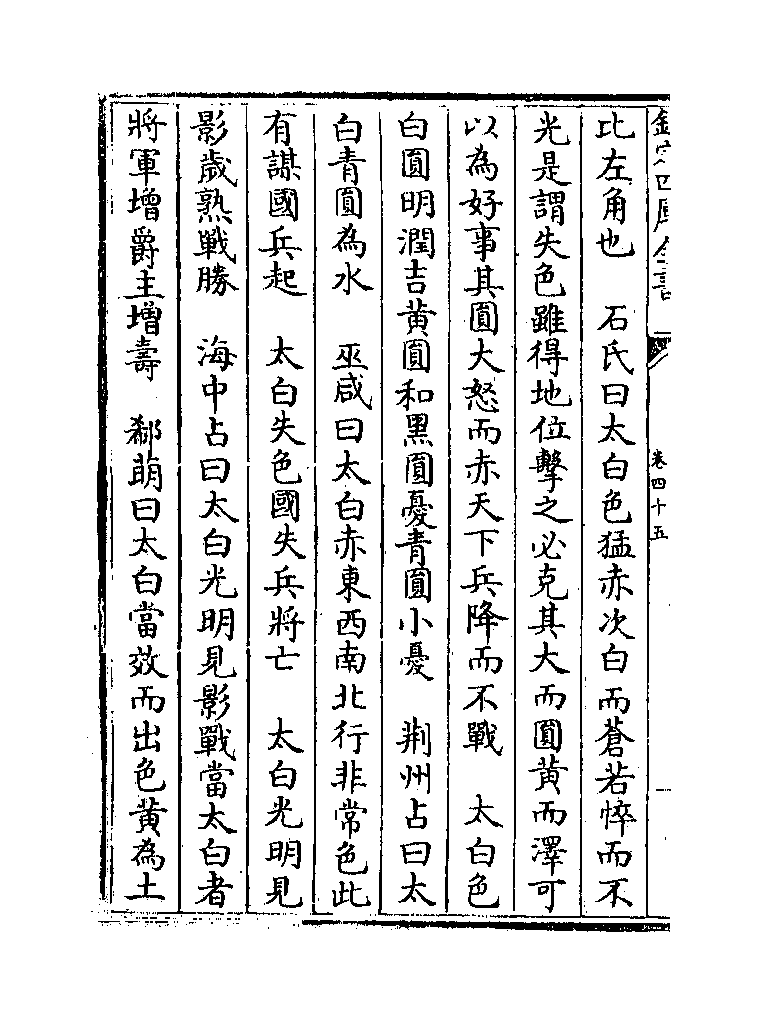 欽定四庫全書
卷四十五
比左角也　石氏曰太白色猛赤次白而蒼若悴而不
光是謂失色雖得地位擊之必克其大而圓黄而澤可
以為好事其圓大怒而赤天下兵降而不戰　太白色
白圓明潤吉黄圓和黑圓憂青圓小憂　荆州占曰太
白青圓為水　巫咸曰太白赤東西南北行非常色此
有謀國兵起　太白失色國失兵將亡　太白光明見
影歲熟戰勝　海中占曰太白光明見影戰當太白者
將軍增爵主增壽　郗萌曰太白當效而出色黄為土